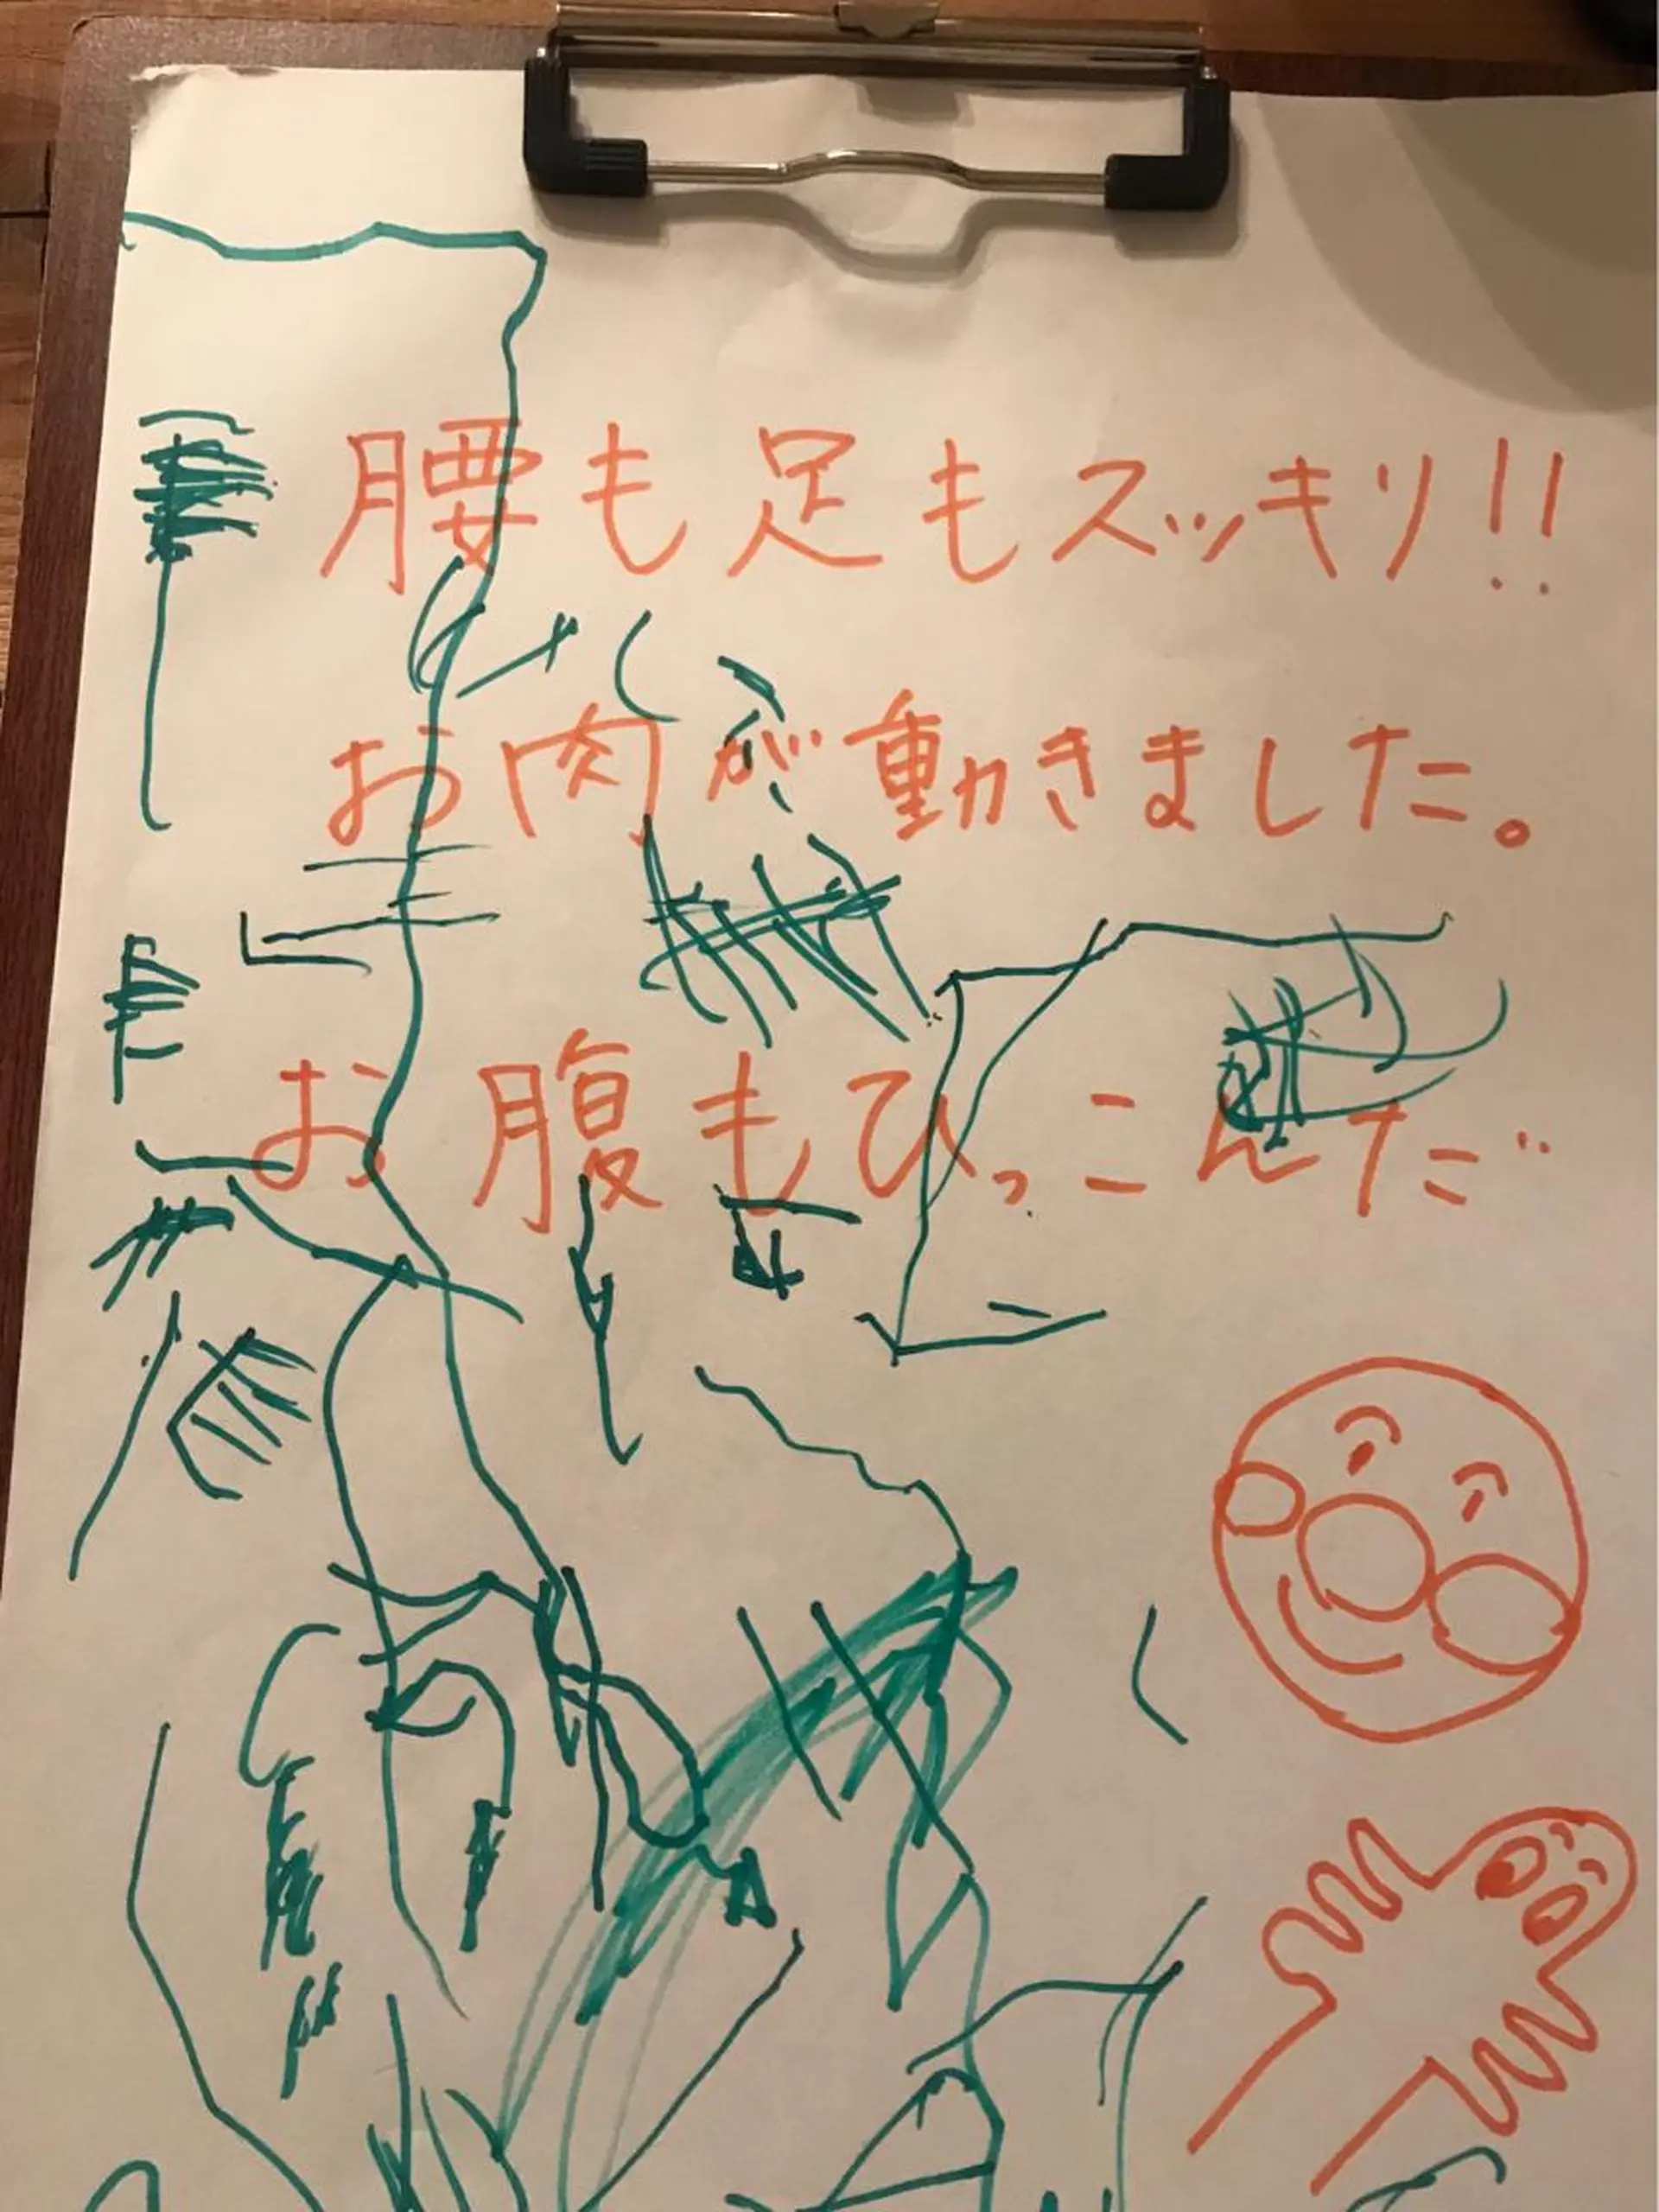 腰も足もスッキリ!!
お肉が動きました。
お腹もひっこんだ